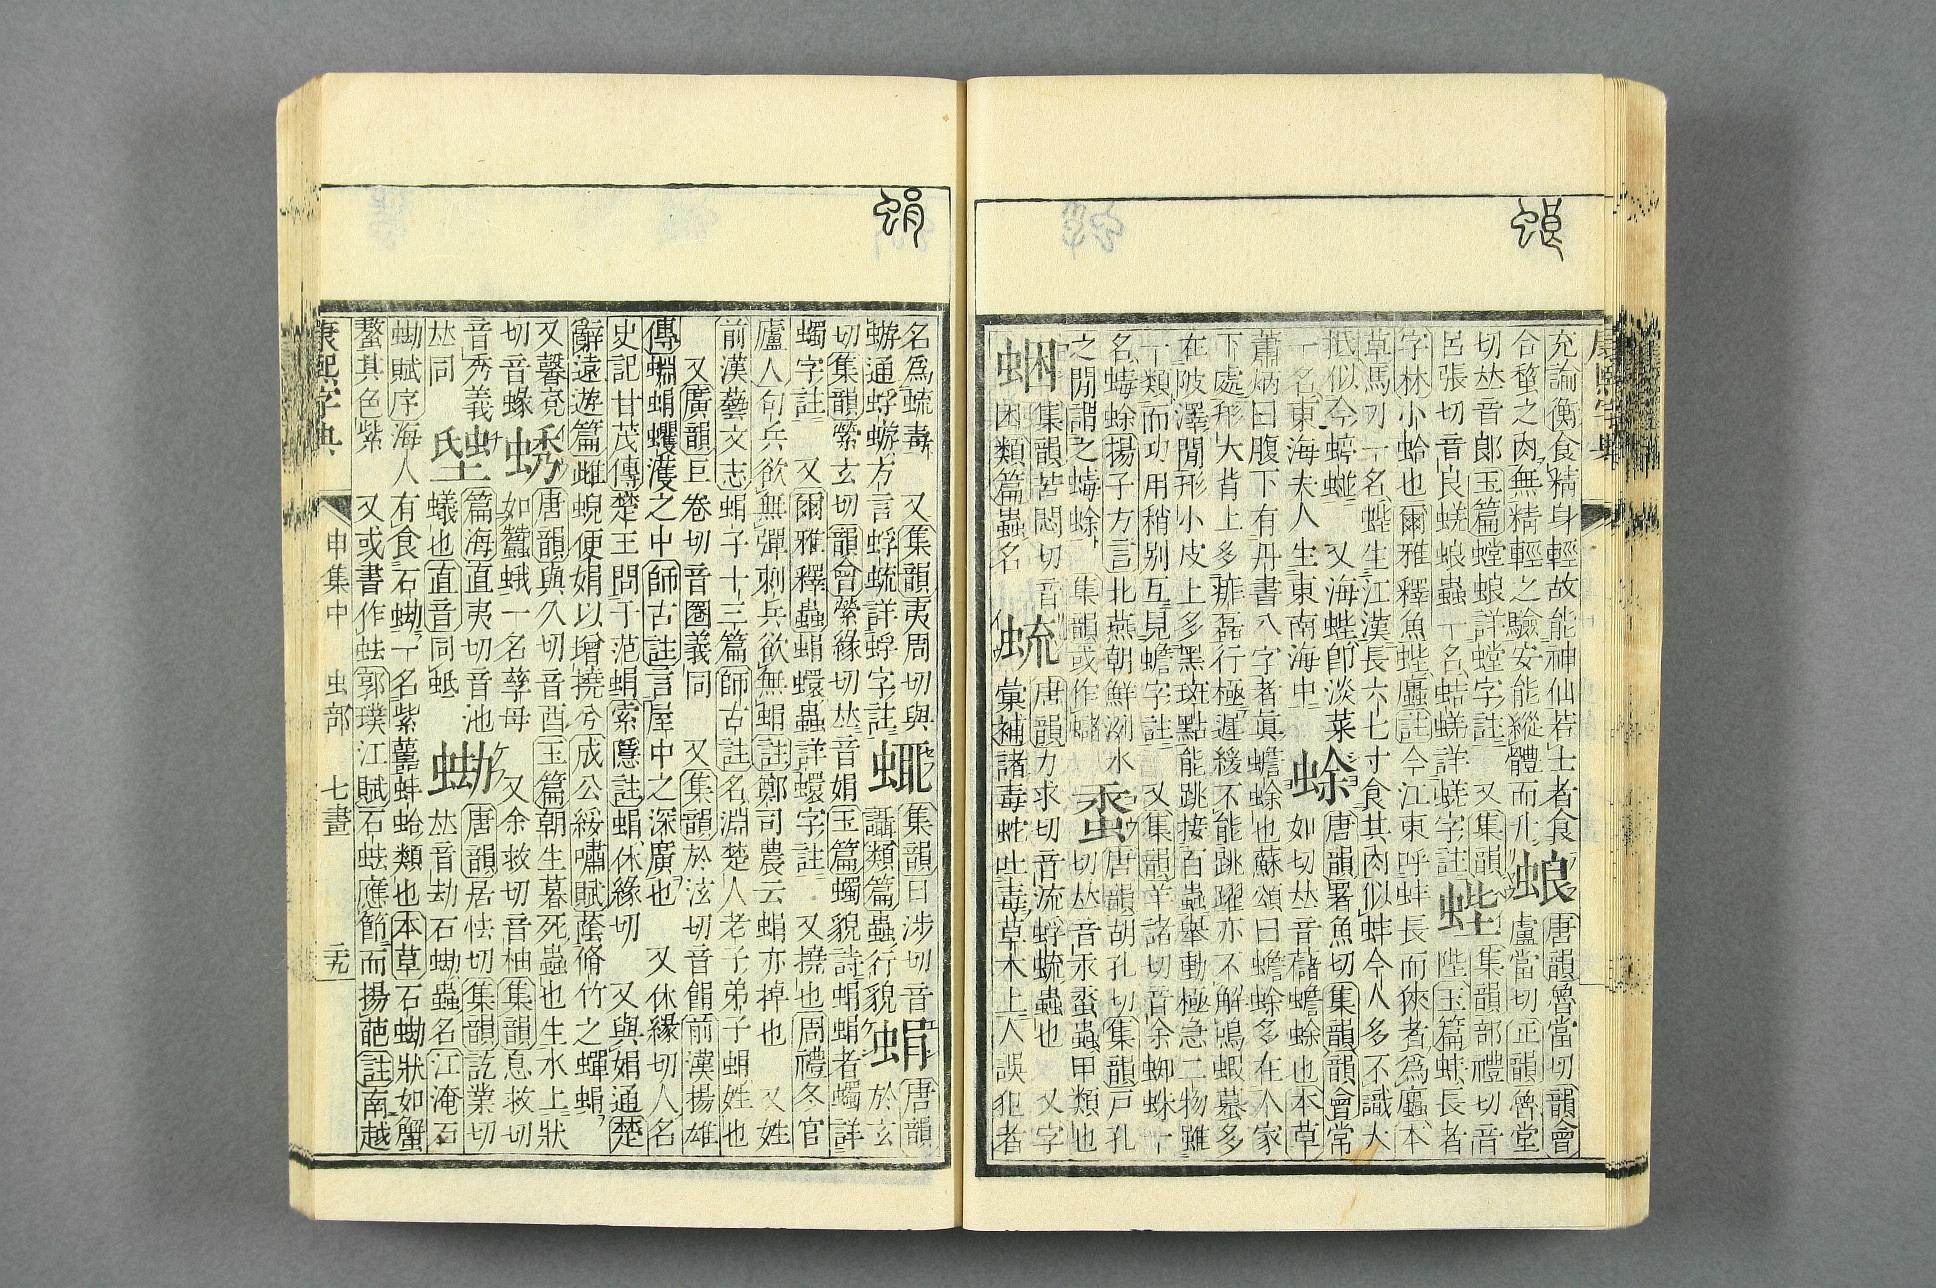 充論衡食精身輕故能神仙若士者食
合蜇之肉無精輕之驗安能縱體而升 蜋 唐韻魯當切韻會
盧當切正韻魯堂
切𠀤音郎玉篇螳蜋詳螳字註 又集韻
呂張切音良蜣蜋蟲一名蛣蜣詳蜣字註 蜌 集韻部禮切音
陛玉篇蜯長者
字林小蛤也爾雅釋魚蜌螷註今江東呼蚌長而狹者爲螷本
草馬刀一名蜌生江漢長六七寸食其肉似蚌今人多不識大
抵似今蝏𧋋 又海蜌卽淡菜 蜍 唐韻署魚切集韻韻會常
一名東海夫人生東南海中 如切𠀤音蟾蜍也本草
蕭炳曰腹下有丹書八字者眞蟾蜍也蘇頌曰蟾蜍多在人家
下處形大背上多痱磊行極遲緩不能跳躍亦不解鳴蝦蟇多
在陂澤閒形小皮上多黑斑點能跳接百蟲舉動極急二物雖
一類而功用稍別互見蟾字註 又集韻羊諸切音余蜘蛛一
名蝳蜍揚子方言北燕朝鮮洌水
之閒謂之蝳蜍 集韻或作蠩 蚉 唐韻胡孔切集韻戶孔
切𠀤音汞蚉蟲甲類也
蜠 集韻苦悶切音
困類篇蟲名 蜖 唐韻力求切音流蜉蝣蟲也 又字
彙補諸毒蛇吐毒草木上人誤犯者
名爲蝣毒 又集韻夷周切與
蝣通蜉蝣方言蜉蝣詳蜉字註 蠅 集韻日涉切音
讘類篇蟲行貌 蜎 唐韻
於玄
切集韻縈玄切韻會縈緣切𠀤音娟玉篇蠋貌詩蜎蜎者蠋詳
蠋字註 又爾雅釋蟲蜎蠉蟲詳蠉字註 又撓也周禮冬官
廬人句兵欲無彈刺兵欲無蜎註鄭司農云蜎亦掉也 又姓
前漢藝文志蜎子十三篇師古註名淵楚人老子弟子蜎姓也
又廣韻巨卷切音圈義同 又集韻於泫切音䏍前漢揚雄
傳蜵蜎蠼濩之中師古註言屋中之深廣也 又休緣切人名
史記甘茂傳楚王問于范蜎索隱註蜎休緣切 又與娟通楚
辭遠遊篇雌蜺便娟以增撓兮成公綏嘯賦蔭脩竹之蟬蜎
又馨兗
切音蠉 蜏 唐韻與久切音酉玉篇朝生暮死蟲也生水上狀
如蠶蛾一名孳母 又余救切音柚集韻息救切
音秀義
𠀤同 蛏 篇海直夷切音池
蟻也直音同蚳 蜐 唐韻居怯切集韻訖業切
𠀤音劫石蜐蟲名江淹石
蜐賦序海人有食石蜐一名紫蘁蚌蛤類也本草石蜐狀如蟹
螯其色紫 又或書作𧉧郭璞江賦石𧉧應節而揚葩註南越
康熙字典 申集中 虫部 七畫 𠦃九